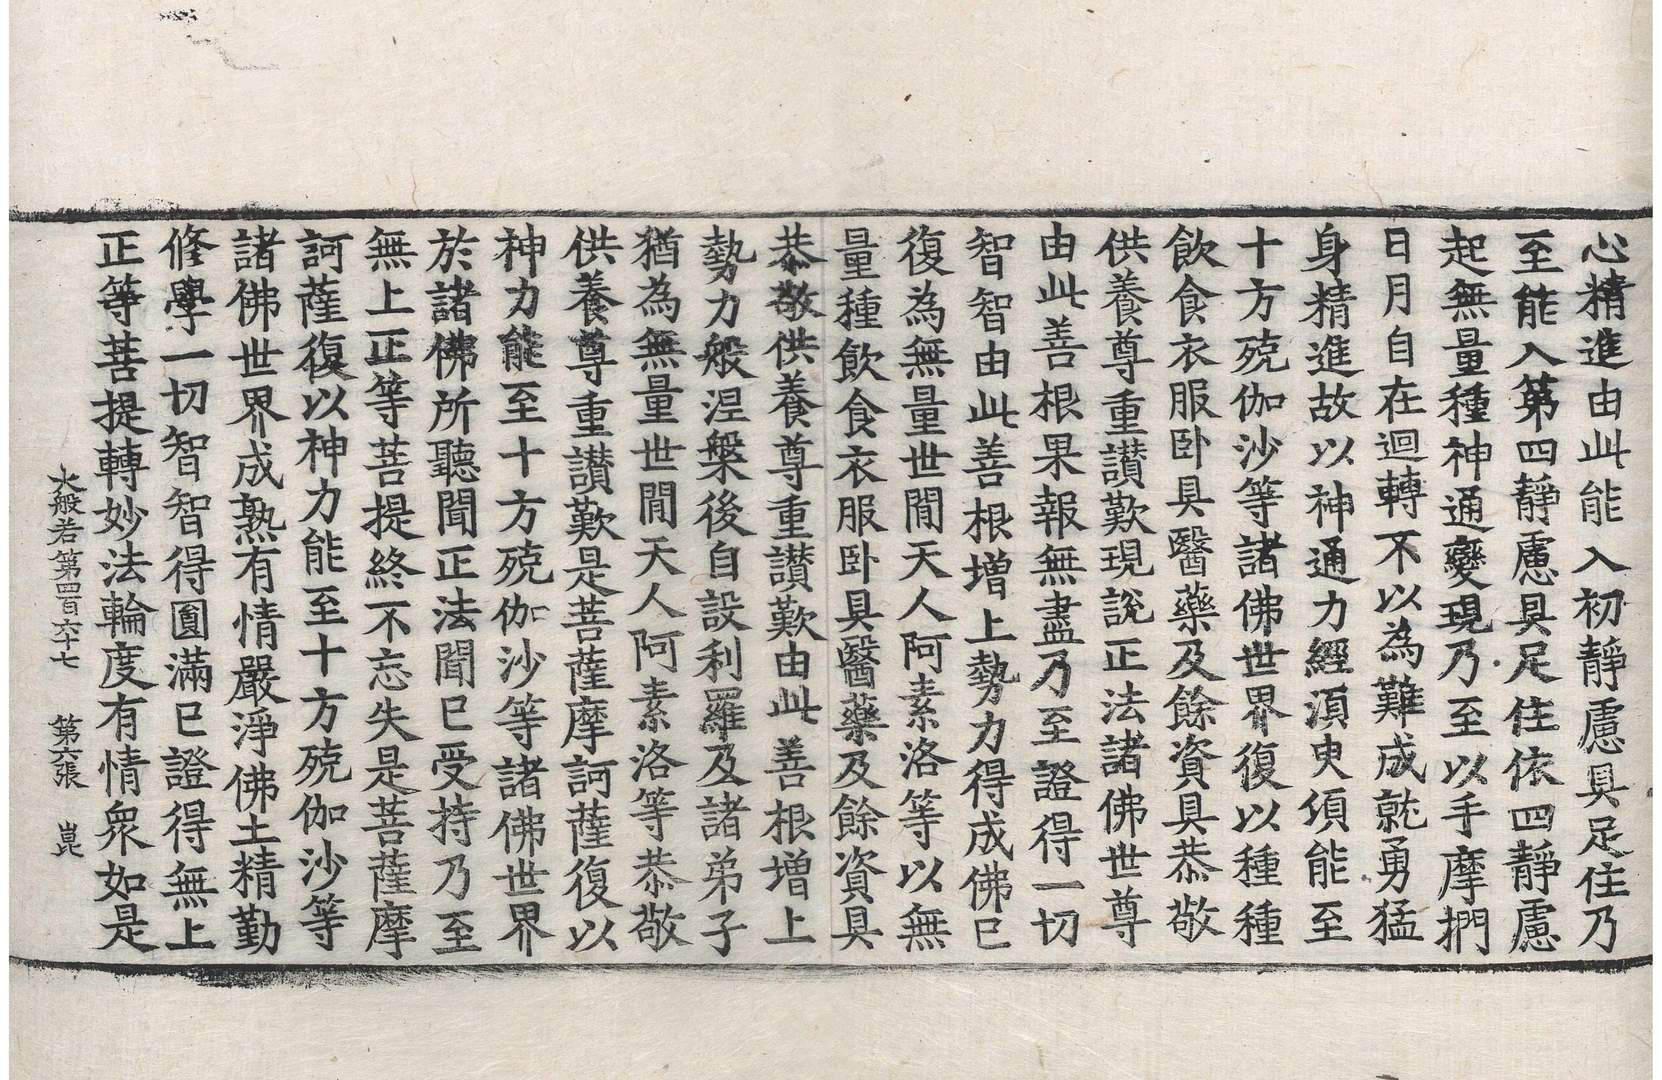 心精進由此能入初靜慮具足住乃
至能入第四靜慮具足住依四靜慮
起無量種神通變現乃至以手摩捫
日月自在迴轉不以為難成就勇猛
身精進故以神通力經須臾頃能至
十方殑伽沙等諸佛世界復以種種
飲食衣服卧具醫藥及餘資具恭敬
供養尊重讃歎現說正法諸佛世尊
由此善根果報無盡乃至證得一切
智智由此善根增上勢力得成佛已
復為無量世間天人阿素洛等以無
量種飲食衣服卧具醫藥及餘資具
恭敬供養尊重讃歎由此善根增上
勢力般涅槃後自設利羅及諸弟子
猶為無量世間天人阿素洛等恭敬
供養尊重讃歎是菩薩摩訶薩復以
神力能至十方殑伽沙等諸佛世界
於諸佛所聽聞正法聞已受持乃至
無上正等菩提終不忘失是菩薩摩
訶薩復以神力能至十方殑伽沙等
諸佛世界成熟有情嚴淨佛土精勤
修學一切智智得圓滿已證得無上
正等菩提轉妙法輪度有情衆如是
大般若第四百六十七 第六張 崑